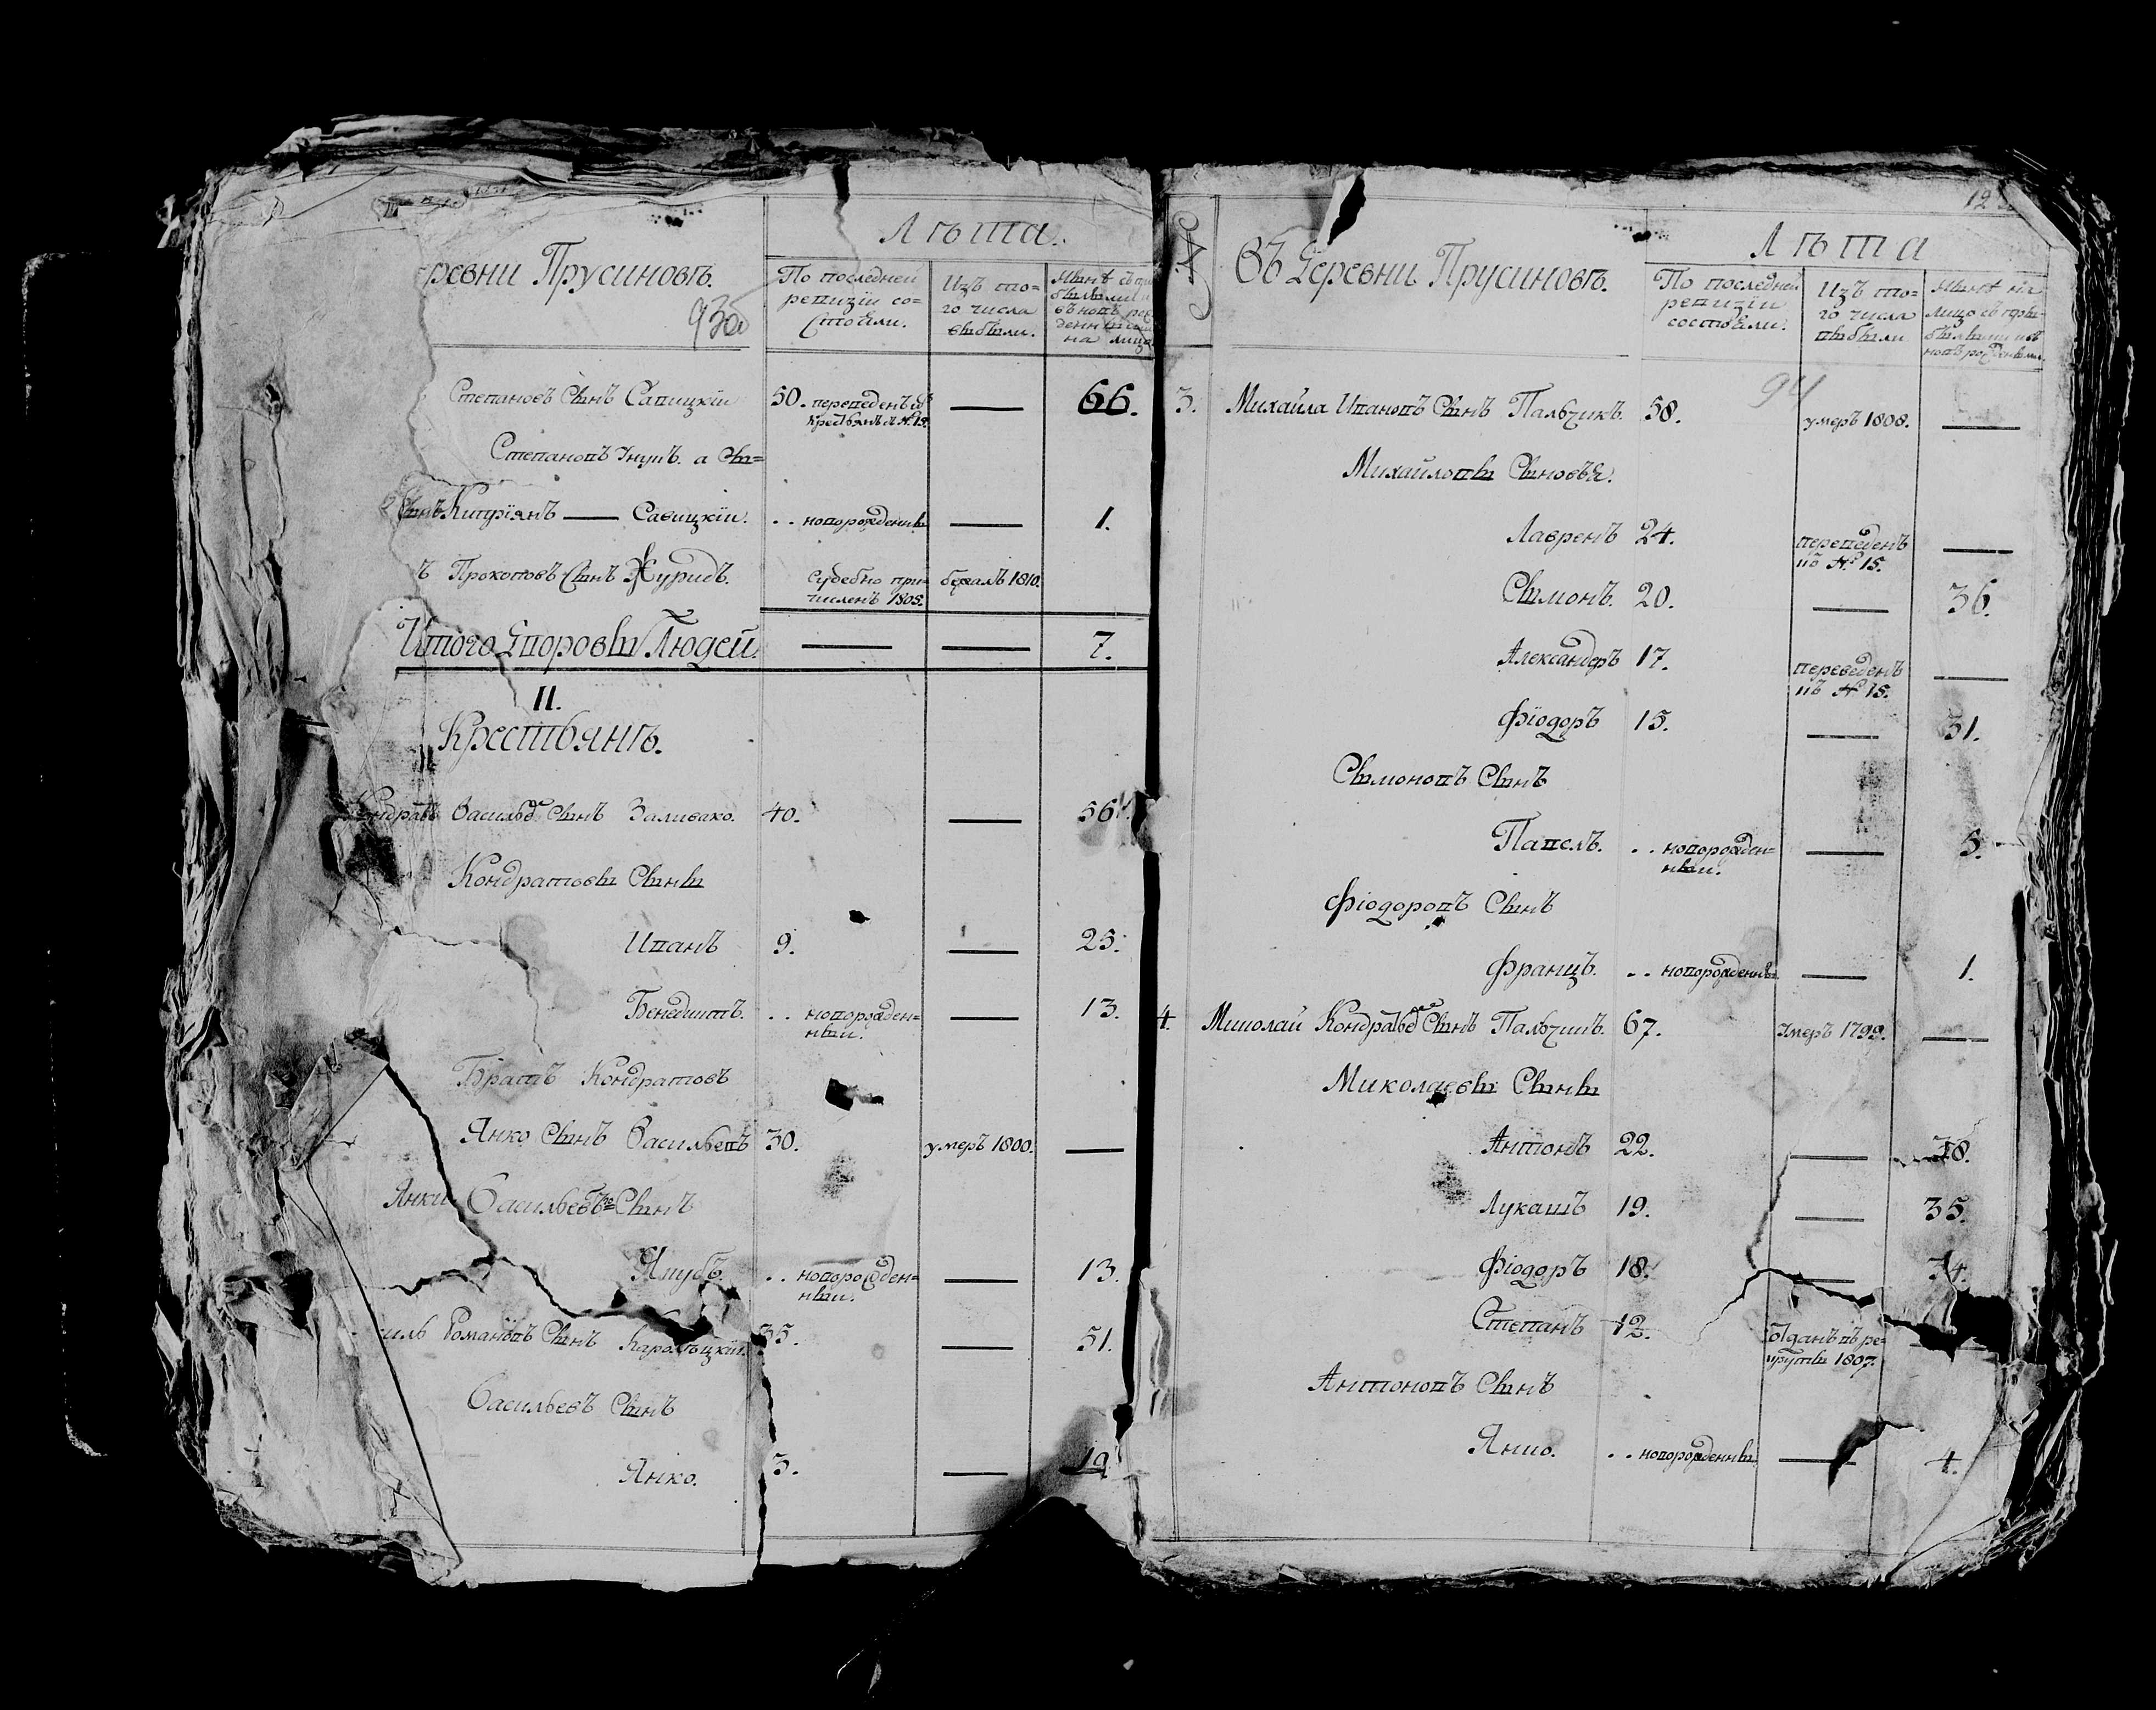 Лѣта.
ревни Прусиновѣ.
93об
По последней
ревизіи со=
стояли.
Изъ то=
го числа
выбыли.
на лицо
Степановъ Сынъ Савицкіи
50. переведенъ
66.
Степановъ Внукъ. а Сы=
Сынъ Кипріянъ — Савицкіи.
. . новорожденны
—
1.
ъ Прокоповъ Сынъ Журидъ.
Судебно при=
численъ 1805.
бежалъ 1810.
Итого Дворовы Людей.
—
—
7.
II.
Крестьянѣ.
Кондратъ Васильевъ Сынъ Заливако.
40.
—
56.
Кондратовы Сыны
Иванъ
9.
—
25.
Бенедиктъ.
. . новорожден=
ныи.
—
13.
Братъ Кондратовъ
Янко Сынъ Васильевъ
30.
умеръ 1800.
—
Янки Васильевъ Сынъ
Якубъ.
. . новорожден=
ныи.
—
13.
иль Романовъ Сынъ
35.
—
51.
Васильевъ Сынъ
Янко.
3.
—
19.
12
№
Въ Деревни Прусиновѣ.
Лѣта
94
По последней
ревизіи
состояли.
Изъ то=
го числа
выбыли
3. Михайла Ивановъ Сынъ Пальчикъ.
58.
умеръ 1808.
—
Михайловы Сыновья.
Лавренъ
24.
переведенъ
въ № 15.
—
Сымонъ.
20.
—
36.
Александеръ
17.
переведенъ
въ № 15.
—
Фіодоръ
15.
—
31.
Сымоновъ Сынъ
Павелъ.
. . новорожден=
ныи.
—
5.
Фіодоровъ Сынъ
Францъ.
. . новорожденны
—
1.
4. Миколай Кондратьевъ Сынъ Пальчикъ.
67.
Умеръ 1799.
—
Миколаевы Сыны
Антонъ
22.
—
38.
Лукашъ
19.
—
35.
Фіодоръ
18.
—
34.
Степанъ
12.
отданъ въ ре=
круты 1807.
—
Антоновъ Сынъ
Янко.
. . новорожденны
—
4.